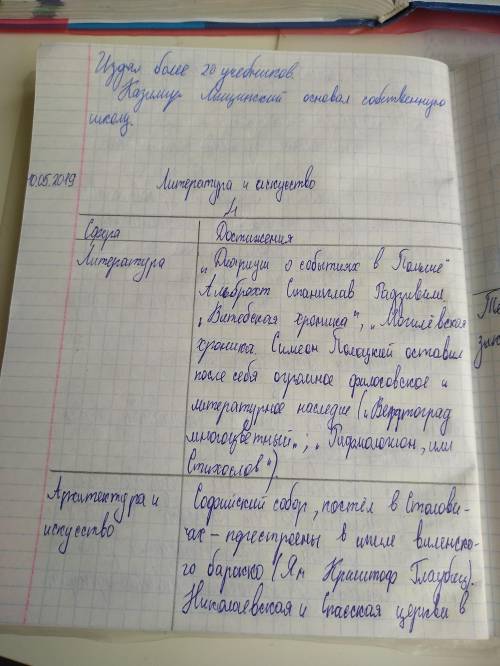 Издал более 20 учебников.
Казимир Лыщинский основал собственную
школу.
10.05.2019 Литература и искусство
Сфера Достижения
Литература „Диариуш о событиях в Польше"
Альбрехт Станислав Радзивилл.
„Витебская хроника", „Могилёвская
хроника. Симеон Полоцкий оставил
после себя огромное философское и
литературное наследие („Вертоград
многоцветный„; „Рифмологион, или
Стихослов")
Архитектура и Софийский собор, костёл в Столови-
искусство чах - перестроены в стиле виленско-
го барокко (Ян Криштоф Глаубиц).
Николаевская и Спасская церкви в